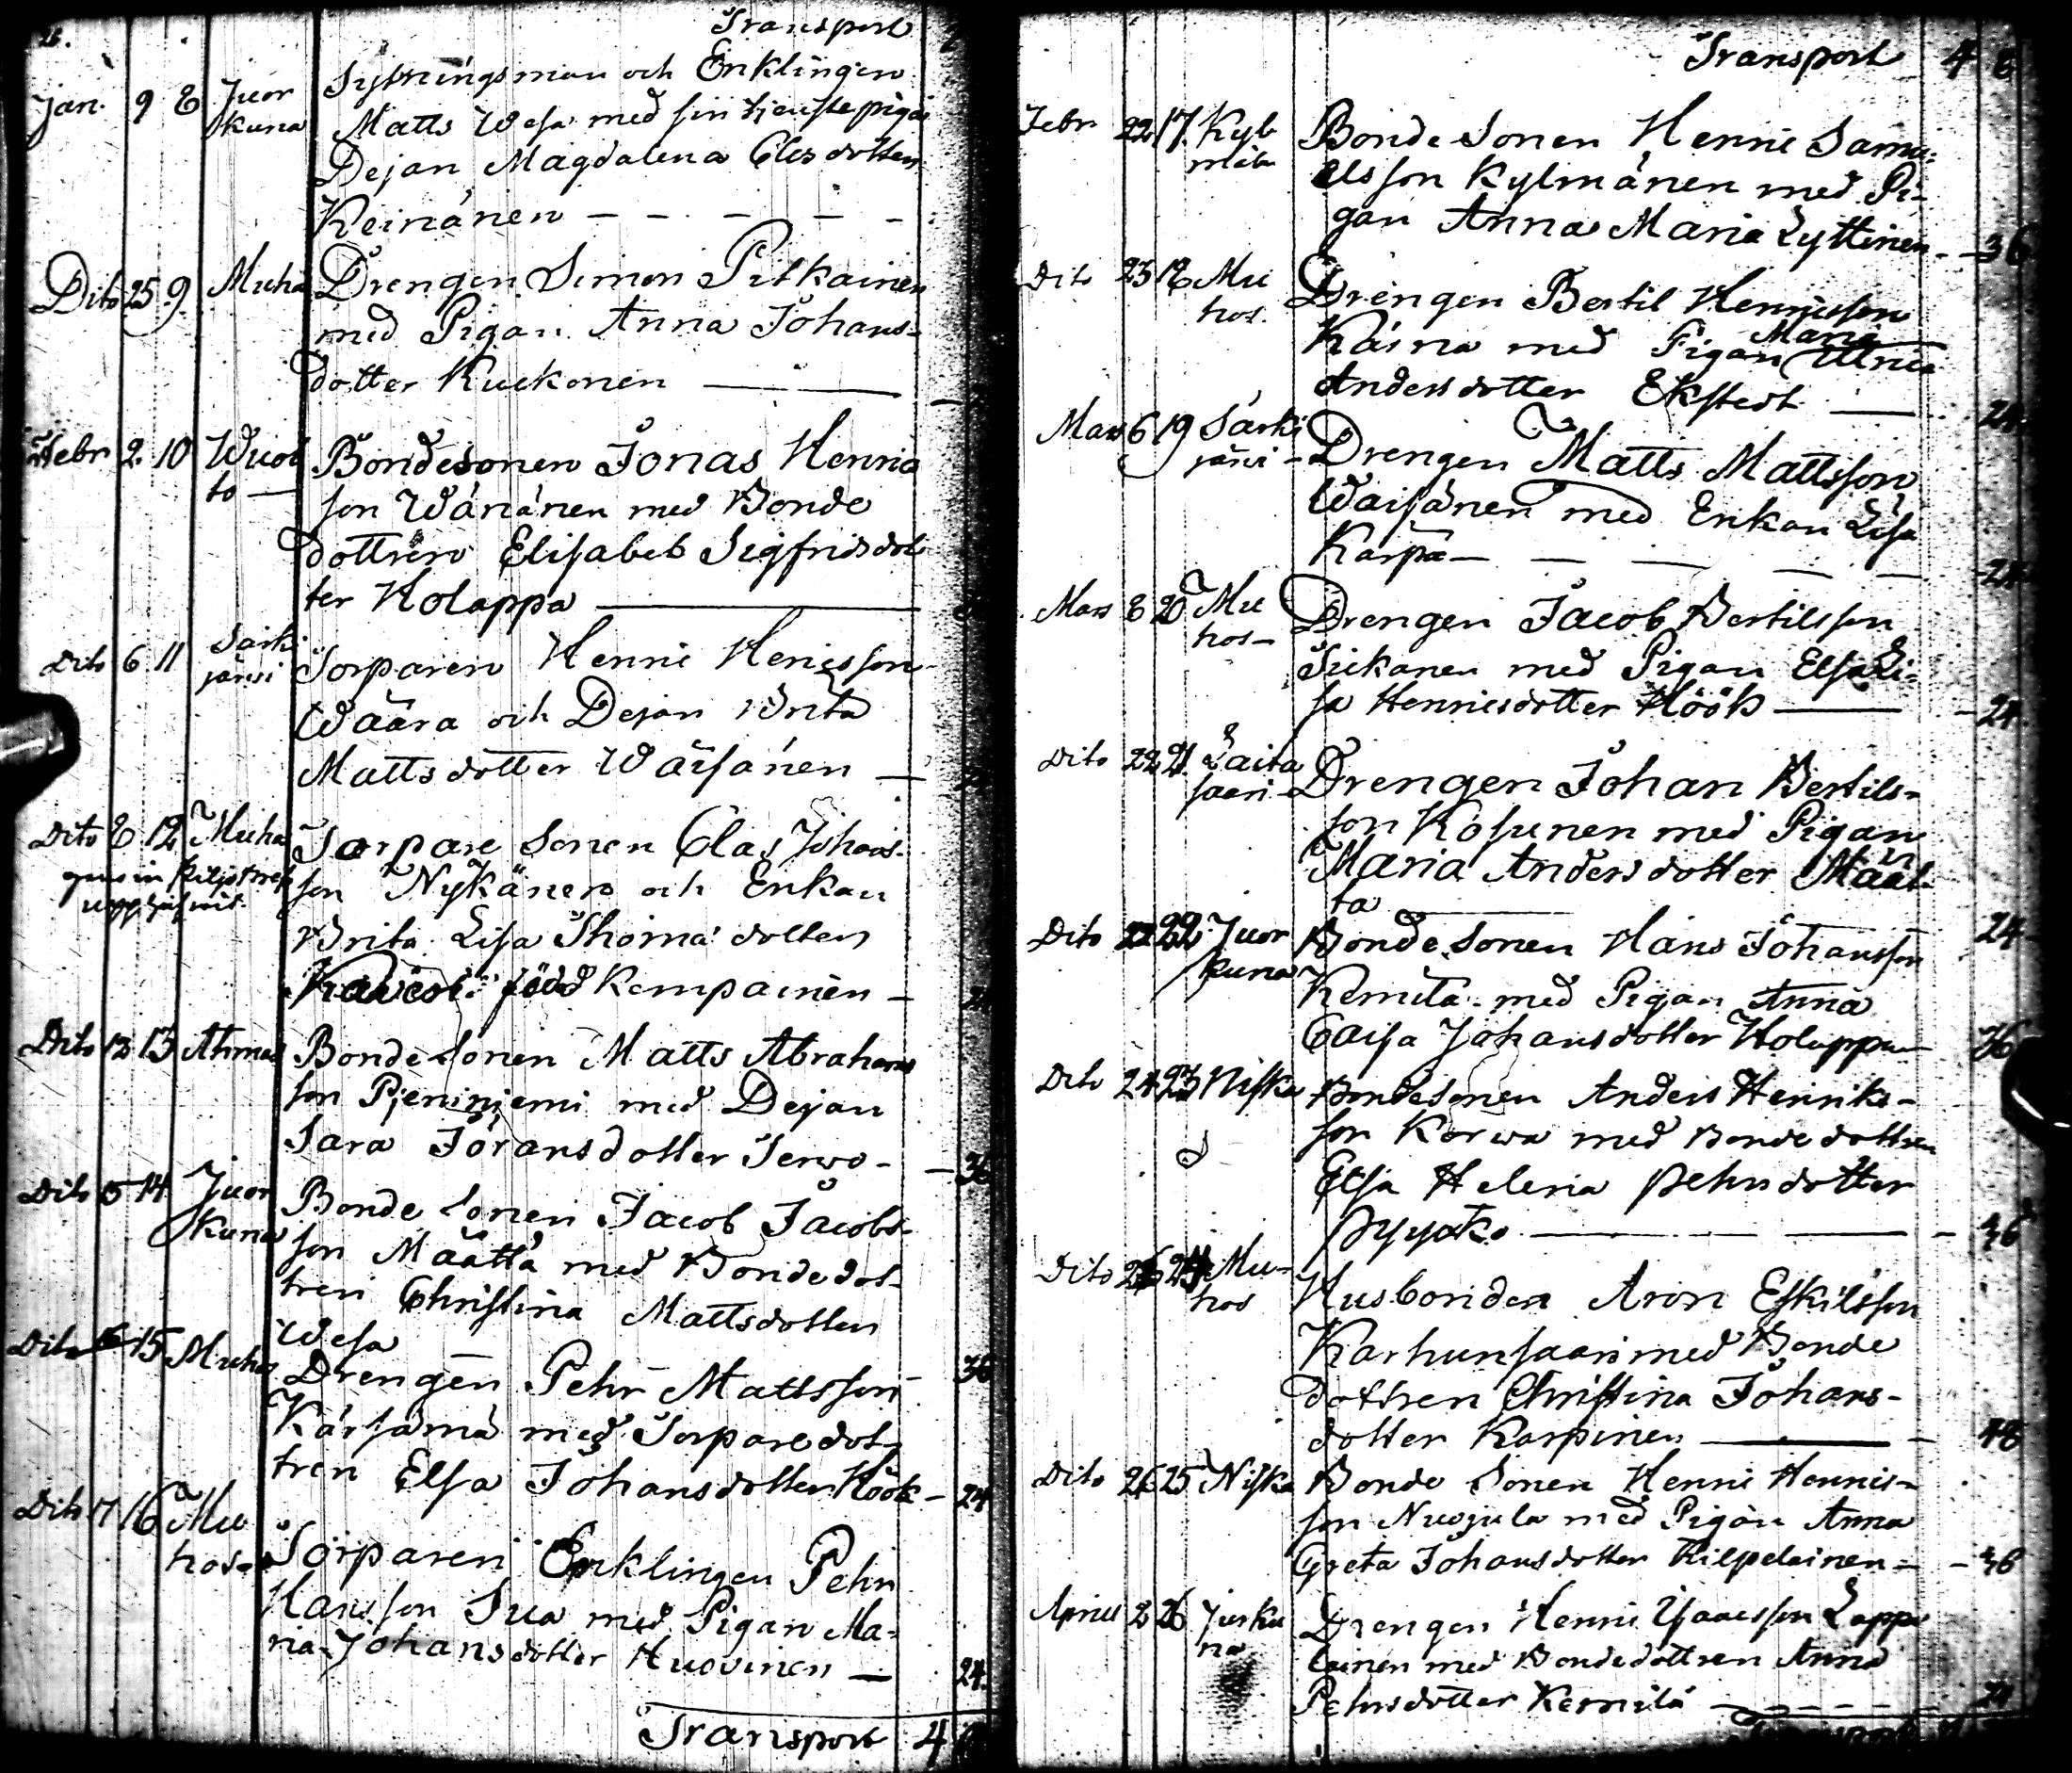 Transport
Jan. 9 8 Juor Sytningsman och Enklingen
kuna Matts Wesa med sin tjenstepiga
Dejan Magdalena Elesdotter
Keinänen — — — — —
Dito 25 9. Muhos Drengen Simon Pitkainen
med Pigan Anna Johans-
dotter Kuckonen ———
Febr 2. 10 Wuol Bondesonen Jonas Henric
to — son Wänänen med Bonde
dottren Elisabet Sigfridsdot
ter Holappa ———
Dito 6 11 Särki Torparen Henric Henicsson
järwi Wäära och Dejan Brita
Mattsdotter Wäisänen —
Dito 8 12 Muhos Torpare Sonen Clas Johans-
son Nykänen och Enkan
Brita Lisa Thoma dotter
född Kempainen —
Dito 13 13 Ahmas Bonde Sonen Matts Abrahams
son Pieniniemi med Dejan
Sara Göransdotter Terwo - — 36
Dito 15 14 Juor Bonde Sonen Jacob Jacobs-
kuna son Määttä med Bondedot-
tren Christina Mattsdotter
Wesa 36
Dito 15 Muhos Drengen Pehr Mattsson
Kärsämä med Torparedot-
tren Elsa Johansdotter Höök — 24
Dito 17 16 Mu Torparen Enklingen Pehr
hos — Hansson Sua med Pigan Ma-
ria Johansdotter Huovinen — 24.
Transport 4
Transport 4 8
Febr 22 17. Kyl Bonde Sonen Henric Samu-
mälä elsson Kylmänen med Pi-
gan Anna Maria Lyttinen — 36
Dito 23 18 Mu Drengen Bertil Henricsson
hos. Käina med Pigan Maria Ulrica
Andersdotter Ekstedt — 24
Mars 6 19 Särki Drengen Matts Mattsson
järwi — Waisänen med Enkan Lisa
Karpa — — — — — 24
Mars 8 20 Mu Drengen Jacob Bertilsson
hos — Tiikanen med Pigan Elsa Li-
sa Henricsdotter Höök — 24.
Dito 22 21. Laita Drengen Johan Bertils-
saari — son Kosunen med Pigan
Maria Andersdotter Määt-
ta 24
Dito 22 22 Juor Bonde Sonen Hans Johansson
kuna Kemilä med Pigan Anna
Caisa Johansdotter Holappa — 36
Dito 24 23 Niska Bonde Sonen Anders Henriks-
son Korwa med Bondedottren
Elsa Helena Pehrsdotter
Pyyko ——— — 36
Dito 26 24 Mu- Husbonden Aron Eskilsson
hos Karhunsaari med Bonde
dottren Christina Johans-
dotter Karpinen ——— 48
Dito 26 25 Niska Bonde Sonen Henric Henrics-
son Nuojula med Pigan Anna
Greta Johansdotter Kilpelainen = — 36
April 2 26 Jurku Drengen Henric Isaacsson Lappa
na lainen med Bondedottren Anna
Pehrsdotter Kemilä — — — — — 24